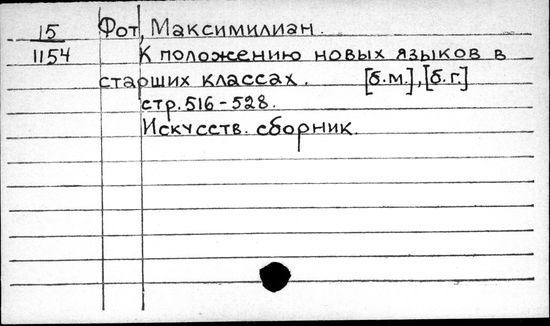 15 Фот, Максимилиан.
1154 К положению новых языков в
старших классах. [б.м.], [б.г.]
стр. 516-528.
Искусств. сборник.